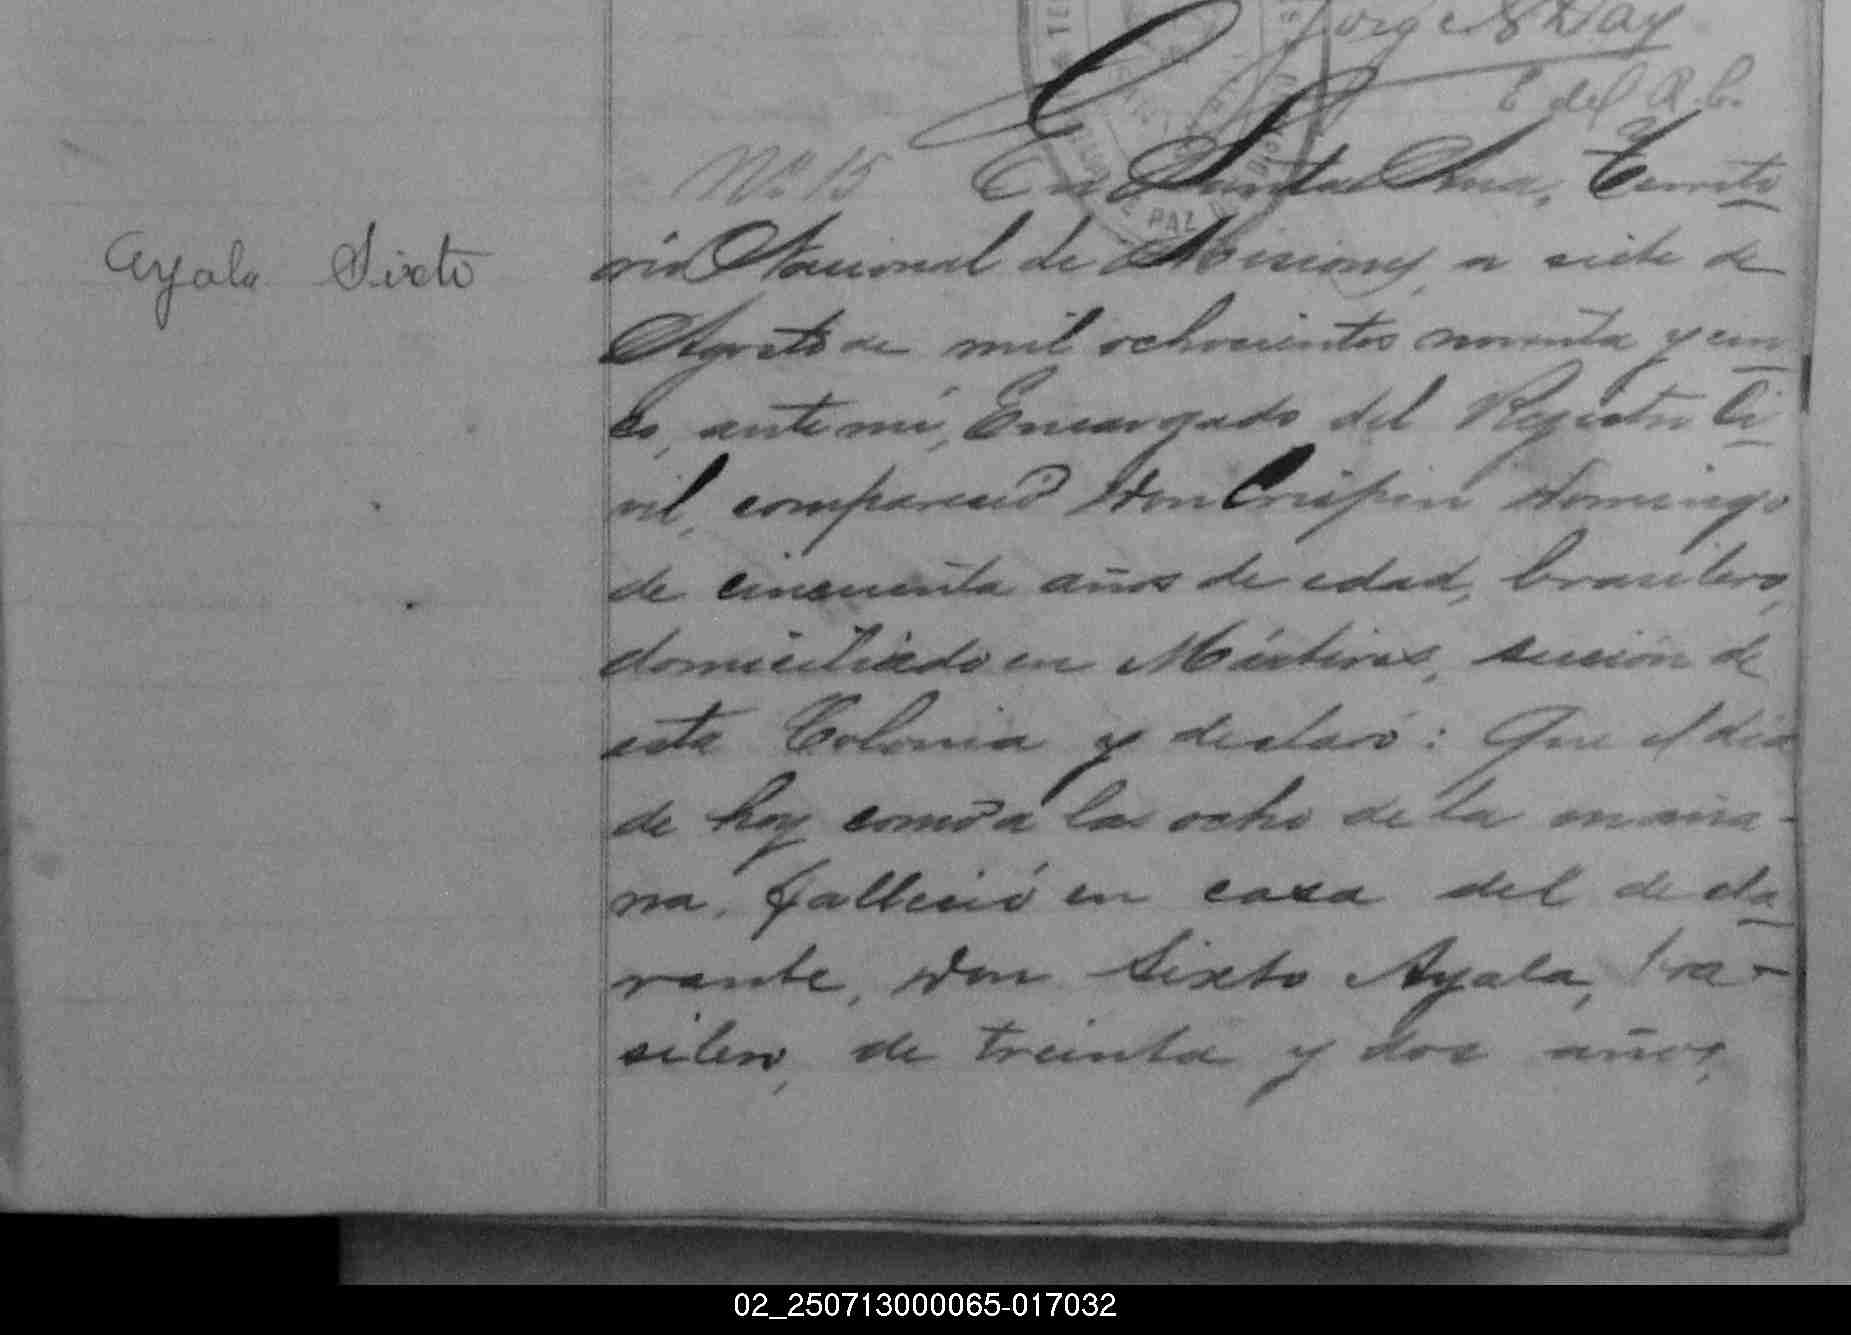 Jorge N Day
E del R. C.
Nº 15 En Santa Ana, Territo
rio Nacional de Misiones, a siete de
Ayala Sixto
Agosto de mil ochocientos noventa y cin
co, ante mi, Encargado del Registro Ci
vil, compareció Don Crispin Domingo
de cincuenta años de edad, brasilero,
domiciliado en Mártires, sección de
esta Colonia y declaró: Que el día
de hoy como a las ocho de la maña-
na, falleció en casa del decla
rante, Don Sixto Ayala, bra-
silero, de treinta y dos años,
PAZ
02_250713000065-017032